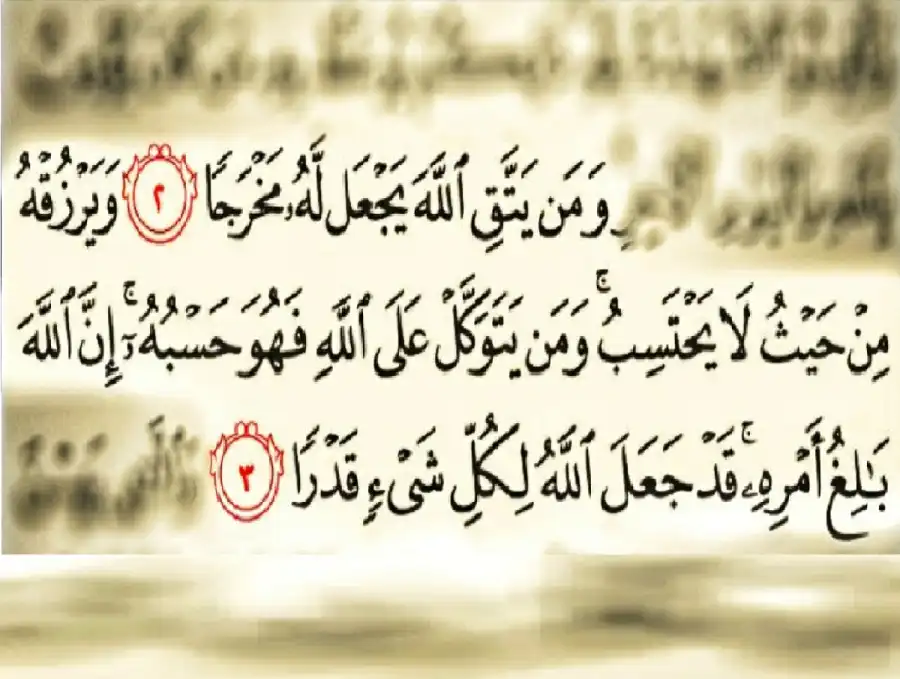 وَمَن يَتَّقِ ٱللَّهَ يَجْعَل لَّهُۥ مَخْرَجًا ٢ وَيَرْزُقْهُ
مِنْ حَيْثُ لَا يَحْتَسِبُ ۚ وَمَن يَتَوَكَّلْ عَلَى ٱللَّهِ فَهُوَ حَسْبُهُۥٓ ۚ إِنَّ ٱللَّهَ
بَـٰلِغُ أَمْرِهِۦ ۚ قَدْ جَعَلَ ٱللَّهُ لِكُلِّ شَىْءٍ قَدْرًا ٣